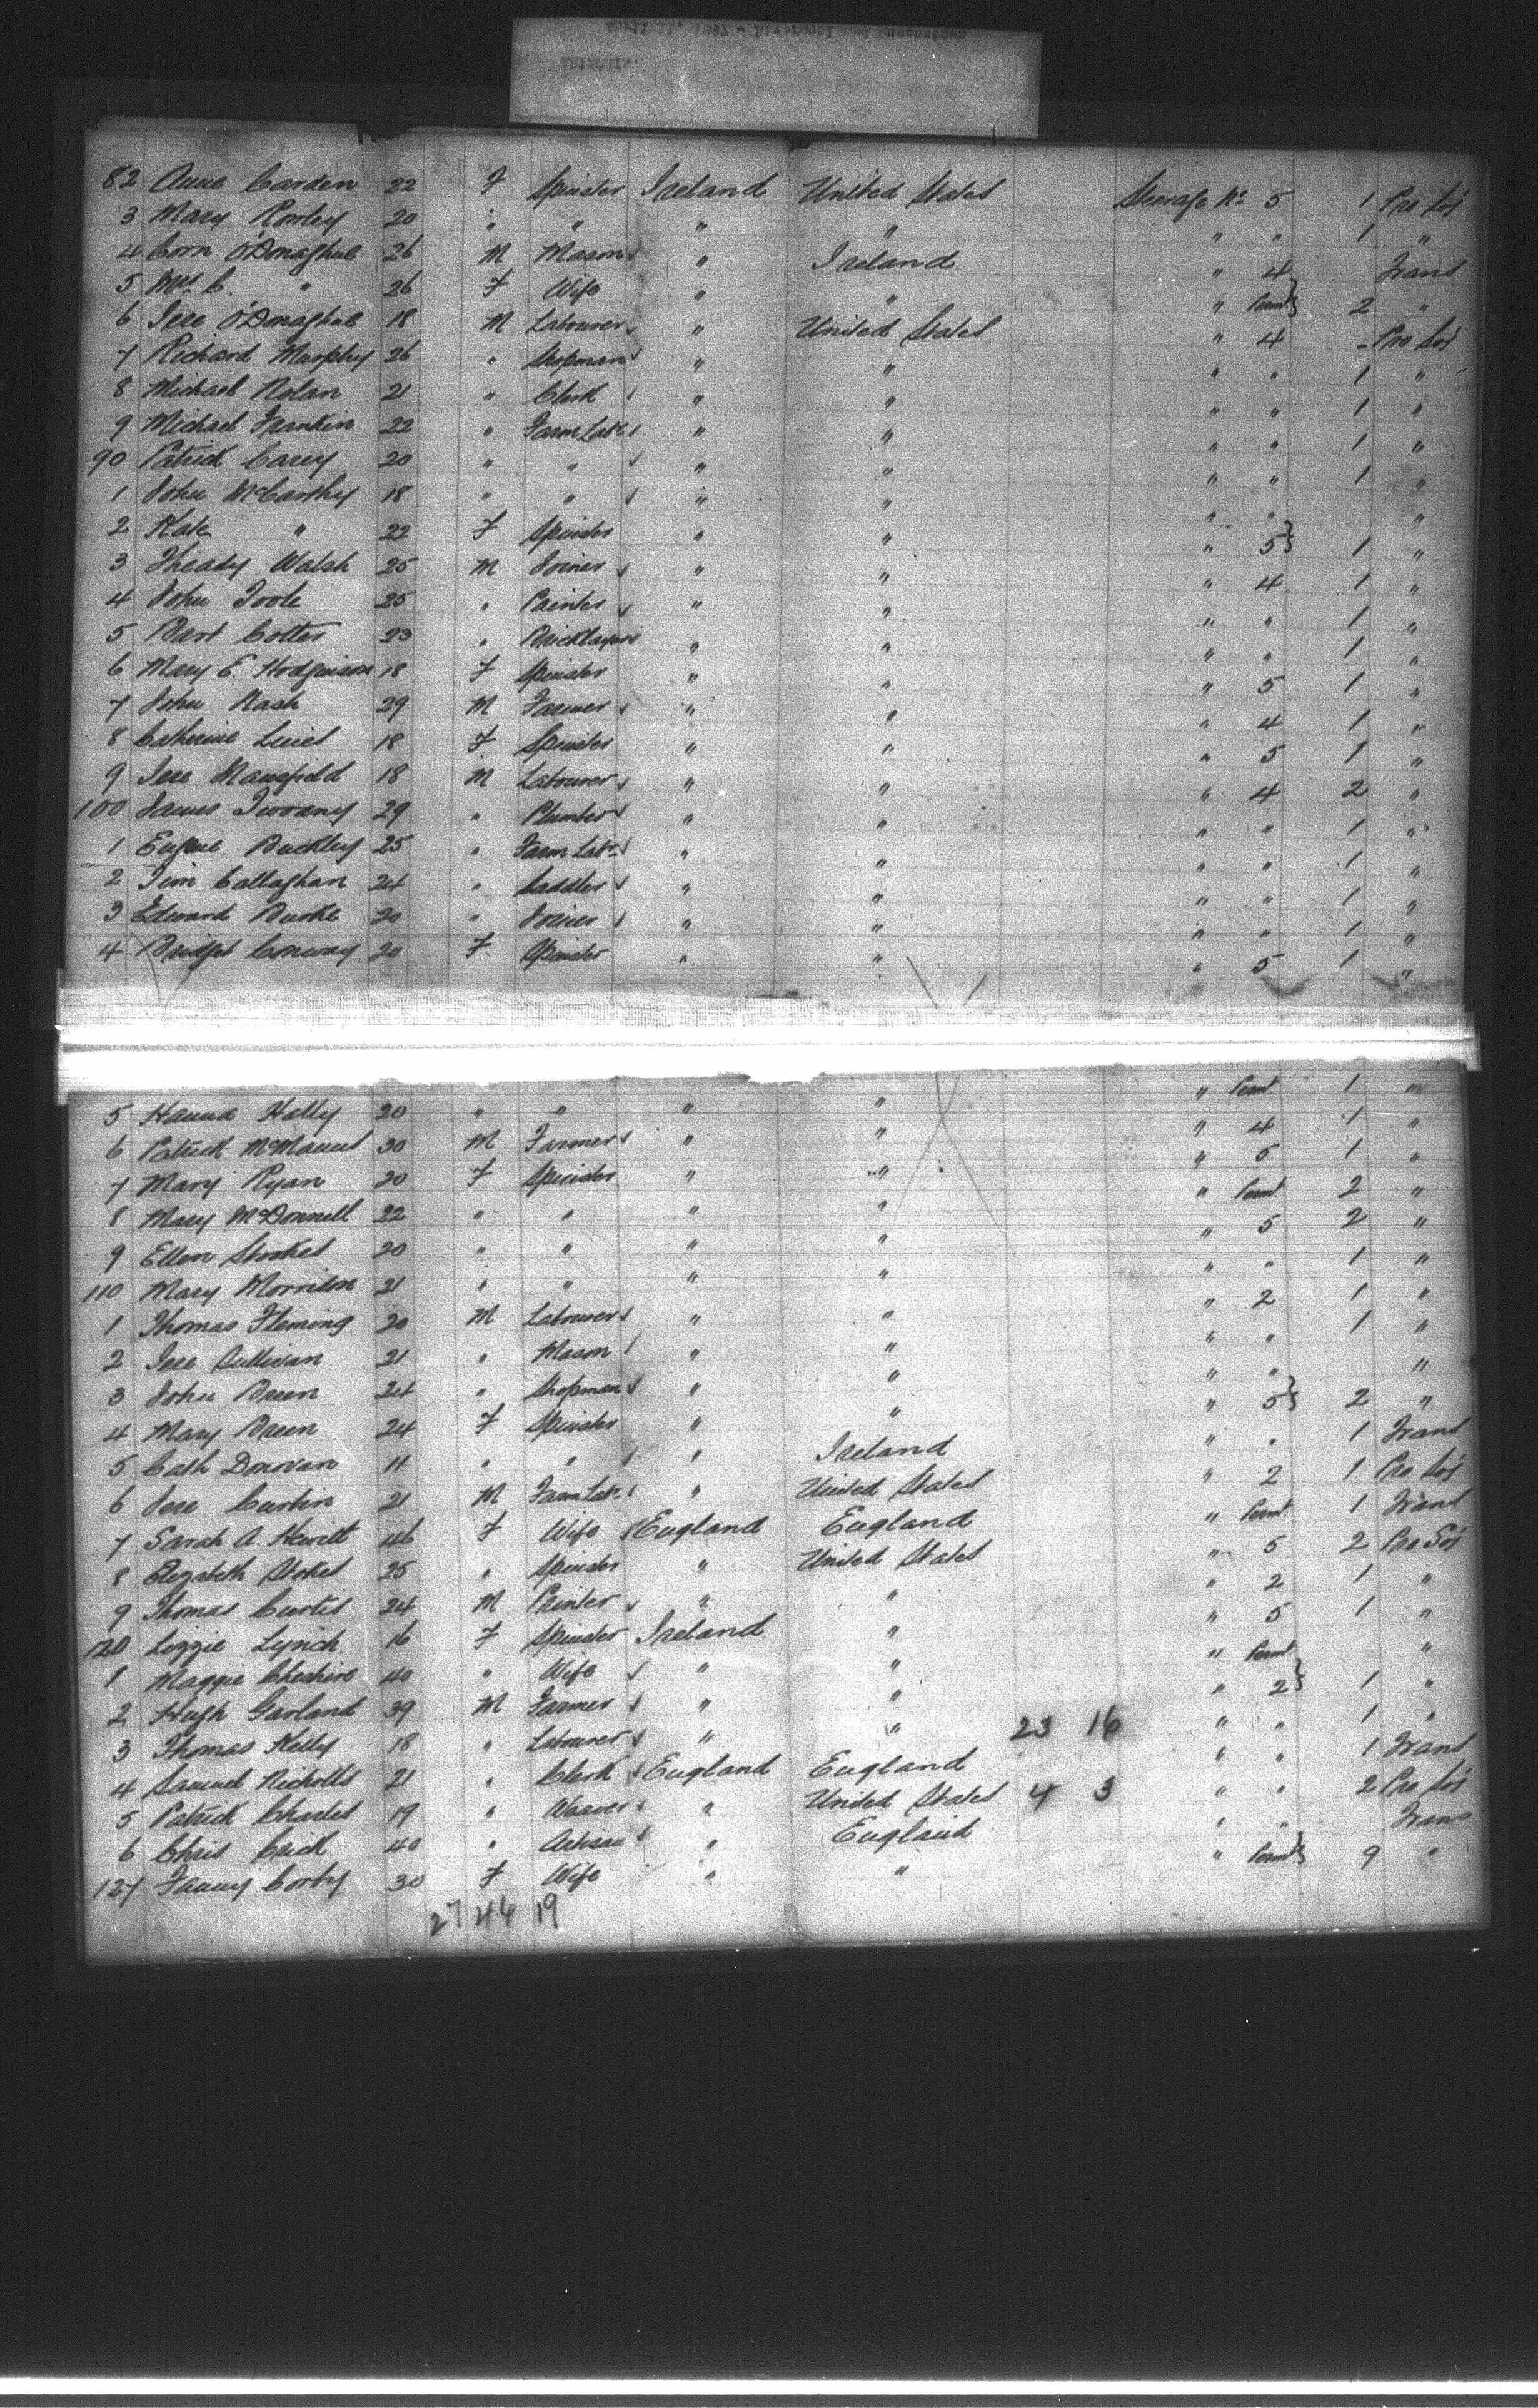 82 Anne Carden 22 F Spinster Ireland United States Steerage No 5 1 Pro Soj
3 Mary Rowley 20 " " " " " " 1 "
4 Corn O'Donaghue 26 M Mason " Ireland " 4 Trans
5 Mrs C. " 26 F Wife " " " Permt 2 "
6 Jere O'Donaghue 18 M Labourer " United States " 4 - Pro Soj
7 Richard Murphy 26 " Shopman " " " " 1 "
8 Michael Nolan 21 " Clerk " " " " 1 "
9 Michael Frankin 22 " Farm Labr " " " " 1 "
90 Patrick Carey 20 " " " " " " 1 "
1 John McCarthy 18 " " " " " " "
2 Kate " 22 F Spinster " " " 5 1 "
3 Theady Walsh 25 M Joiner " " " 4 1 "
4 John Toole 25 " Painter " " " " 1 "
5 Bart Cotter 23 " Bricklayer " " " " 1 "
6 Mary E. Hodginson 18 F Spinster " " " 5 1 "
7 John Nash 29 M Farmer " " " 4 1 "
8 Catherine 18 F Spinster " " " 5 1 "
9 Jere Mansfield 18 M Labourer " " " 4 2 "
100 James 29 " Plumber " " " " 1 "
1 Eugene Buckley 25 " Farm Labr " " " " 1 "
2 Tim Callaghan 24 " Saddler " " " " 1 "
3 Edward Burke 20 " Joiner " " " " 1 "
4 Bridget Conway 20 F Spinster " " " 5 1 "
5 Hanna Hally 20 " " " " " Permt 1 "
6 Patrick McManus 30 M Farmer " " " 4 1 "
7 Mary Ryan 20 F Spinster " " " 5 1 "
8 Mary McDonnell 22 " " " " " Permt 2 "
9 Ellen Stokes 20 " " " " " 5 2 "
110 Mary Morrison 21 " " " " " " 1 "
1 Thomas Fleming 20 M Labourer " " " 2 1 "
2 Jere Sullivan 21 " Mason " " " " 1 "
3 John Breen 24 " Shopman " " " " "
4 Mary Breen 24 F Spinster " " " 5 2 "
5 Cath Donovan 11 " " " Ireland " " 1 Trans
6 Jere Curtin 21 M Farm Labr " United States " 2 1 Pro Soj
7 Sarah A. Hewitt 46 F Wife England England " Permt 1 Trans
8 Elizabeth Stokes 25 " Spinster " United States " 5 2 Pro Soj
9 Thomas Curtis 24 M Printer " " " 2 1 "
120 Lizzie Lynch 16 F Spinster Ireland " " 5 1 "
1 Maggie Cheshire 40 " Wife " " " Permt "
2 Hugh Garland 39 M Farmer " " " 2 1 "
3 Thomas Kelly 18 " Labourer " " 23 16 " " 1 "
4 Samuel Nicholls 21 " Clerk England England " " 1 Trans
5 Patrick Charles 19 " Weaver " United States 4 3 " " 2 Pro Soj
6 Chris 40 " Artisan " England " " Trans
127 Fanny Corby 30 F Wife " " " Permt 9 "
27 46 19